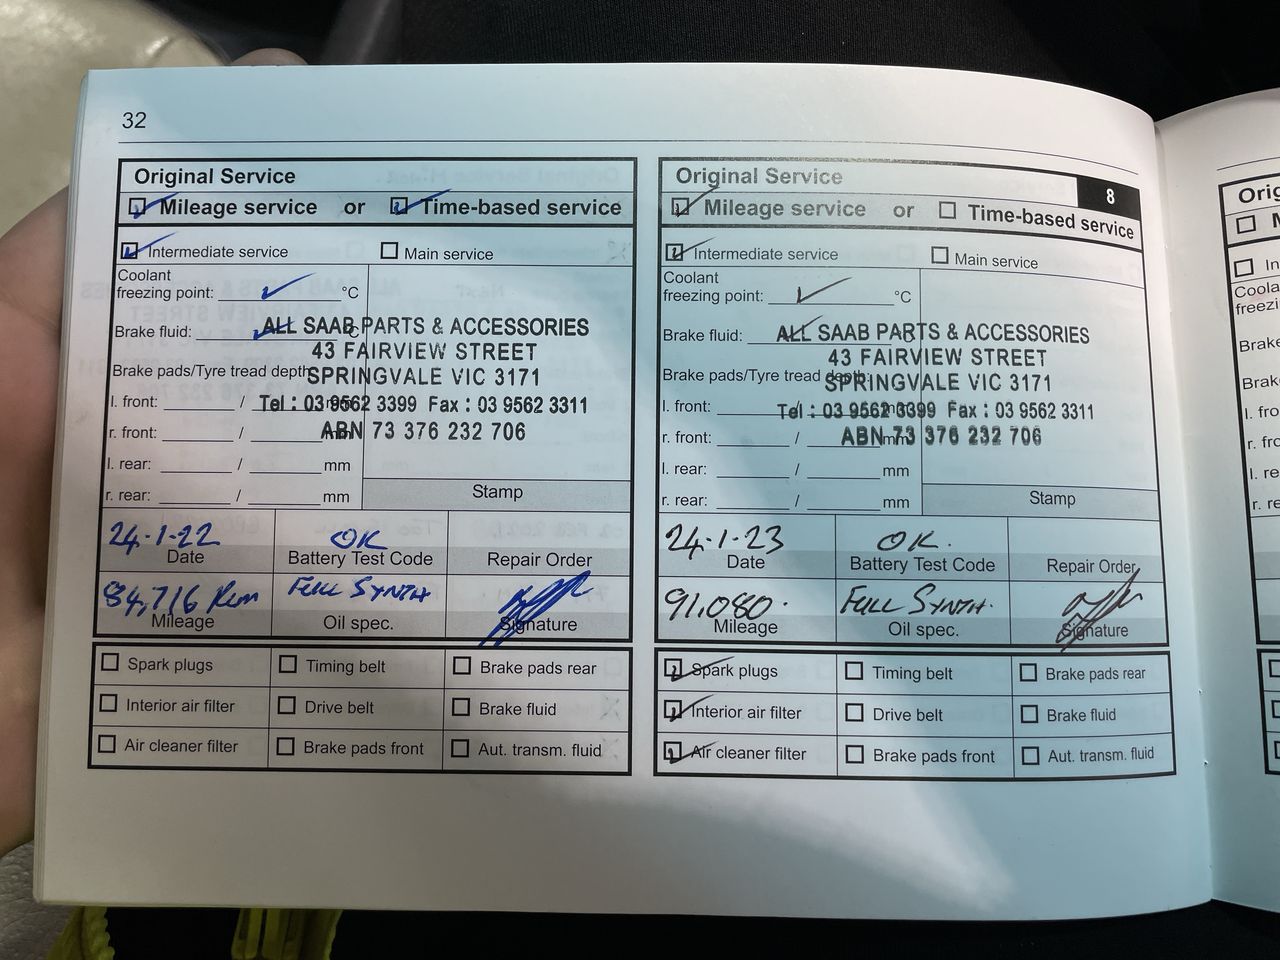 32
Original Service
Mileage service or Time-based service
Intermediate service Main service
Coolant
freezing point: °C
Brake fluid:
ALL SAAB PARTS & ACCESSORIES
43 FAIRVIEW STREET
Brake pads/Tyre tread depth:
SPRINGVALE VIC 3171
l. front: / mm
Tel : 03 9562 3399 Fax : 03 9562 3311
r. front: / mm
ABN 73 376 232 706
l. rear: / mm
r. rear: / mm
Stamp
24-1-22 OK
Date Battery Test Code Repair Order
84,716 Km FULL SYNTH
Mileage Oil spec. Signature
Spark plugs Timing belt Brake pads rear
Interior air filter Drive belt Brake fluid
Air cleaner filter Brake pads front Aut. transm. fluid
Original Service
8
Mileage service or Time-based service
Intermediate service Main service
Coolant
freezing point: °C
Brake fluid:
ALL SAAB PARTS & ACCESSORIES
43 FAIRVIEW STREET
Brake pads/Tyre tread depth:
SPRINGVALE VIC 3171
l. front: / mm
Tel : 03 9562 3399 Fax : 03 9562 3311
r. front: / mm
ABN 73 376 232 706
l. rear: / mm
r. rear: / mm
Stamp
24-1-23 OK.
Date Battery Test Code Repair Order
91,080. FULL SYNTH.
Mileage Oil spec. Signature
Spark plugs Timing belt Brake pads rear
Interior air filter Drive belt Brake fluid
Air cleaner filter Brake pads front Aut. transm. fluid